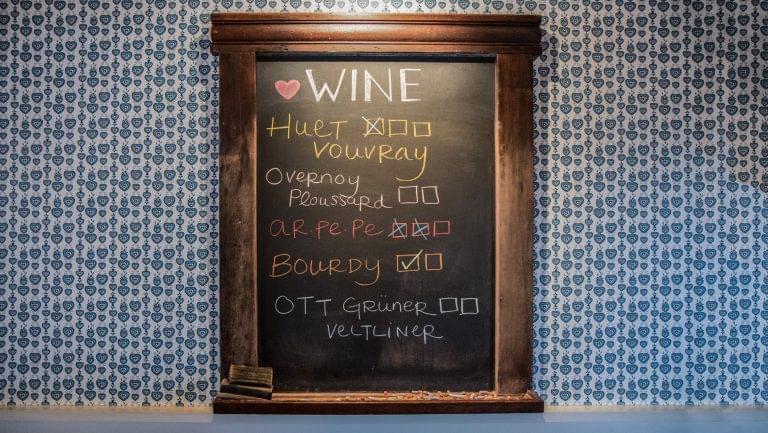 WINE
Huet
Vouvray
Overnoy
Ploussard
AR.PE.PE
Bourdy
OTT Grüner
VELTLINER